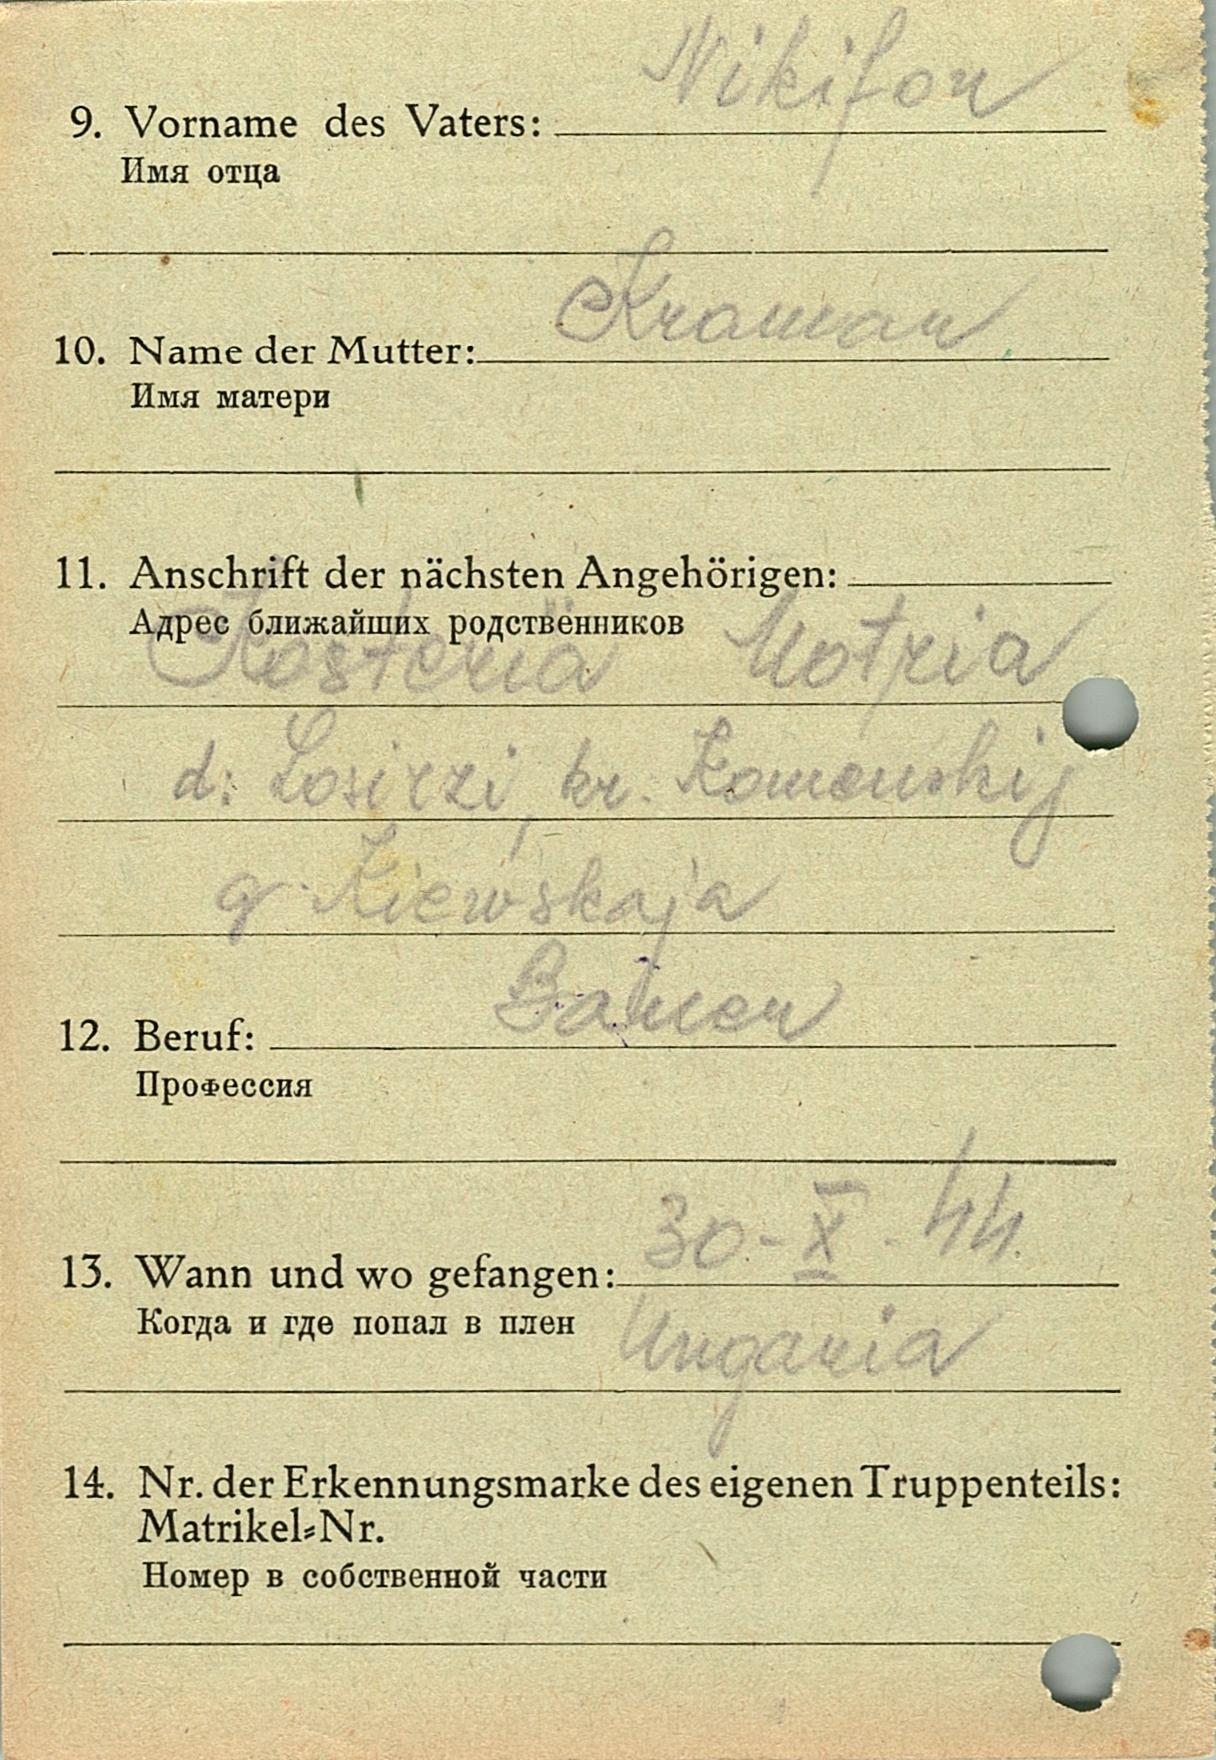 Nikifor
9. Vorname des Vaters:
Имя отца
Kramar
10. Name der Mutter:
Имя матери
11. Anschrift der nächsten Angehörigen:
Адрес ближайших родственников
Motria
d: kr.
g. Kiewskaja
Bauer
12. Beruf:
Профессия
30-X-44.
13. Wann und wo gefangen:
Когда и где попал в плен
Ungaria
14. Nr. der Erkennungsmarke des eigenen Truppenteils:
Matrikel-Nr.
Номер в собственной части